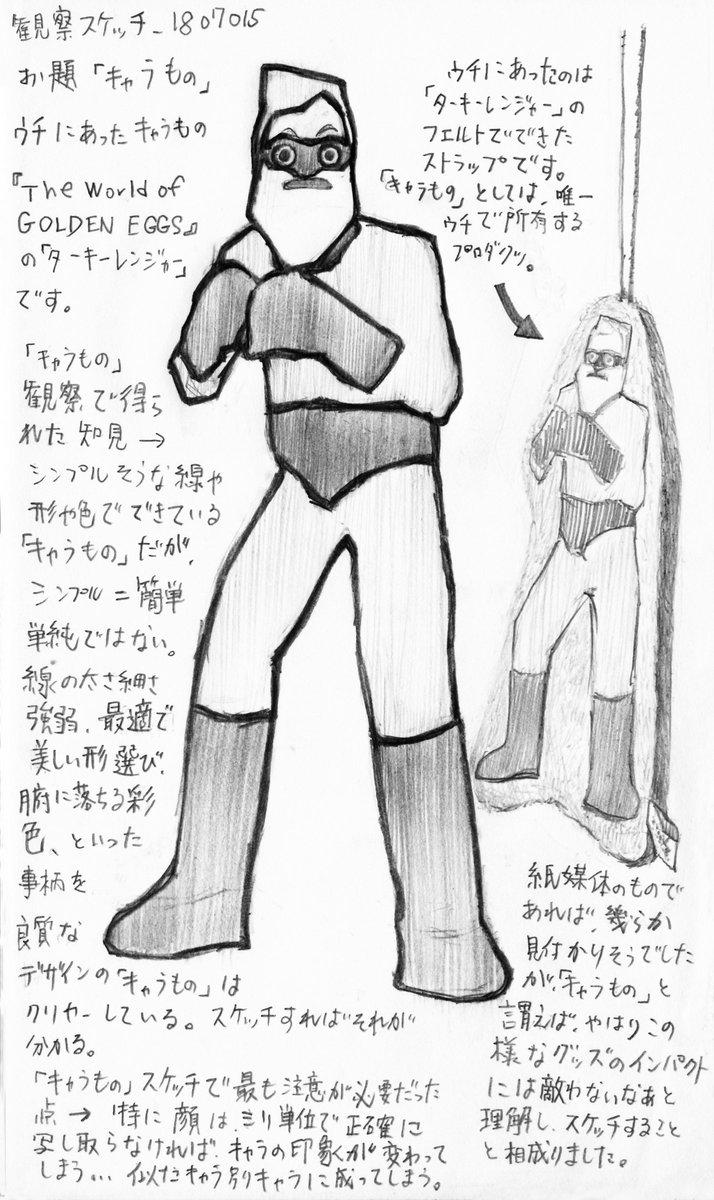 観察スケッチ_1807015
お題「キャラもの」
ウチにあったキャラもの
『The World of
GOLDEN EGGS』
の「ターキーレンジャー」
です。
「キャラもの」
観察で得ら
れた知見→
シンプルそうな線や
形や色でできている
「キャラもの」だが、
シンプル=簡単
単純ではない。
線の太さ細さ
強弱、最適で
美しい形選び、
腑に落ちる彩
色、といった
事柄を
良質な
デザインの「キャラもの」は
クリヤーしている。スケッチすればそれが
分かる。
「キャラもの」スケッチで最も注意が必要だった
点→特に顔は、ミリ単位で正確に
写し取らなければ、キャラの印象が変わって
しまう… 似たキャラ別キャラに成ってしまう。
ウチにあったのは
「ターキーレンジャー」の
フェルトでできた
ストラップです。
「キャラもの」としては、唯一
ウチで所有する
プロダクツ。
紙媒体のもので
あれば、幾らか
見付かりそうでした
が、「キャラもの」と
謂えば、やはりこの
様なグッズのインパクト
には敵わないなあと
理解し、スケッチすること
と相成りました。